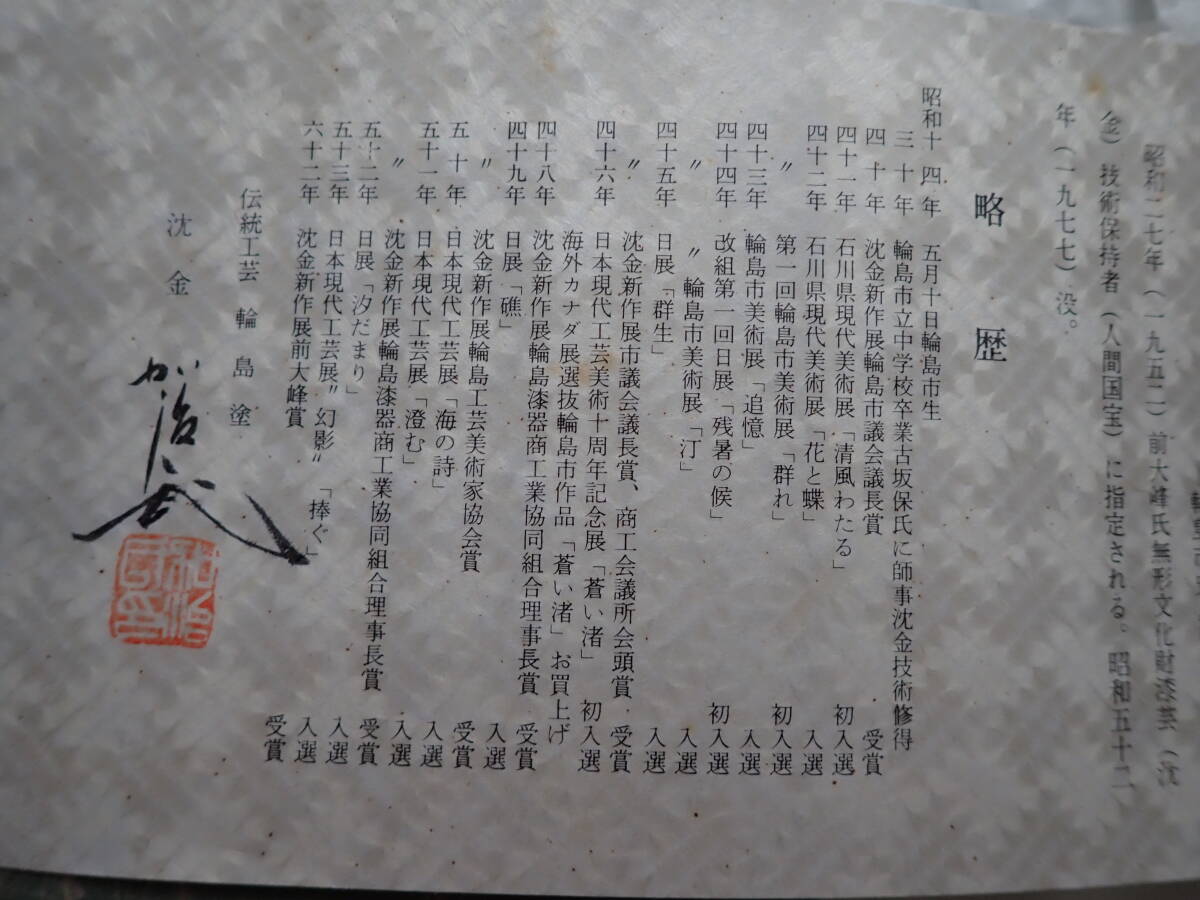 昭和二七年(一九五二)前大峰氏無形文化財漆芸(沈
金)技術保持者(人間国宝)に指定される。昭和五十二
年(一九七七)没。
略歴
昭和十四年 五月十日輪島市生
三十年 輪島市立中学校卒業古坂保氏に師事沈金技術修得
四十年 沈金新作展輪島市議会議長賞 受賞
四十一年 石川県現代美術展「清風わたる」 初入選
四十二年 石川県現代美術展「花と蝶」 入選
〃 第一回輪島市美術展「群れ」 初入選
四十三年 輪島市美術展「追憶」 入選
四十四年 改組第一回日展「残暑の候」 初入選
〃 輪島市美術展「汀」 入選
四十五年 日展「群生」 入選
〃 沈金新作展市議会議長賞、商工会議所会頭賞 受賞
四十六年 日本現代工芸美術十周年記念展「蒼い渚」 初入選
海外カナダ展選抜輪島市作品「蒼い渚」お買上げ
四十八年 沈金新作展輪島漆器商工業協同組合理事長賞 受賞
四十九年 日展「礁」 入選
〃 沈金新作展輪島工芸美術家協会賞 受賞
五十年 日本現代工芸展「海の詩」 入選
五十一年 日本現代工芸展「澄む」 入選
〃 沈金新作展輪島漆器商工業協同組合理事長賞 受賞
五十二年 日展「汐だまり」 入選
五十三年 日本現代工芸展〃幻影〃「捧ぐ」 入選
六十二年 沈金新作展前大峰賞 受賞
伝統工芸 輪島塗
沈金